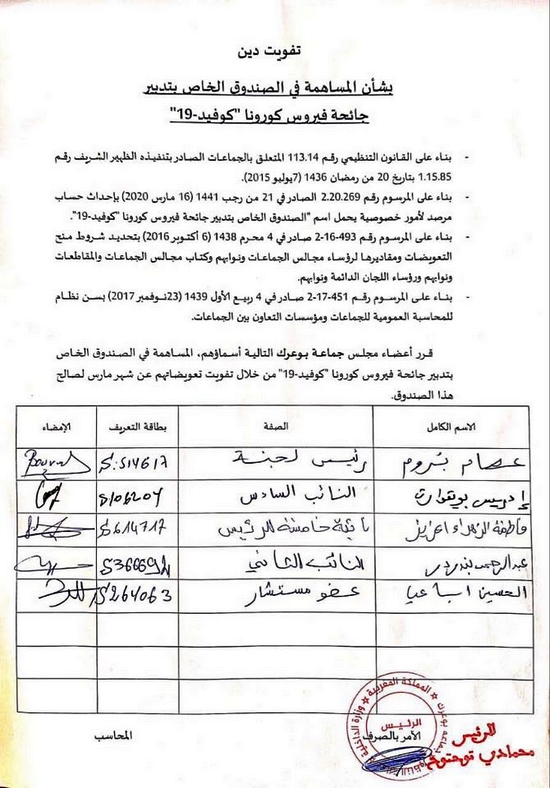 تفويت دين
بشأن المساهمة في الصندوق الخاص بتدبير
جائحة فيروس كورونا "كوفيد-19"
- بناء على القانون التنظيمي رقم 113.14 المتعلق بالجماعات الصادر بتنفيذه الظهير الشريف رقم
1.15.85 بتاريخ 20 من رمضان 1436 (7يوليو 2015).
- بناء على المرسوم رقم 2.20.269 الصادر في 21 من رجب 1441 (16 مارس 2020) بإحداث حساب
مرصد لأمور خصوصية يحمل اسم "الصندوق الخاص بتدبير جائحة فيروس كورونا "كوفيد-19".
- بناء على المرسوم رقم 493-16-2 صادر في 4 محرم 1438 (6 أكتوبر 2016) بتحديد شروط منح
التعويضات ومقاديرها لرؤساء مجالس الجماعات ونوابهم وكتاب مجالس الجماعات والمقاطعات
ونوابهم ورؤساء اللجان الدائمة ونوابهم.
- بناء على المرسوم رقم 451-17-2 صادر في 4 ربيع الأول 1439 (23نوفمبر 2017) بسن نظام
للمحاسبة العمومية للجماعات ومؤسسات التعاون بين الجماعات.
قرر أعضاء مجلس جماعة بوعرك التالية أسماؤهم، المساهمة في الصندوق الخاص
بتدبير جائحة فيروس كورونا "كوفيد-19" من خلال تفويت تعويضاتهم عن شهر مارس لصالح
هذا الصندوق.
الاسم الكامل الصفة بطاقة التعريف الإمضاء
عصام رئيس لجنة S.514617
إدريس النائب السادس S106204
فاطمة الزهراء نائبة خامسة للرئيس S614717
عبد الرحمن النائب الثاني
الحسين عضو مستشار S264063
المملكة المغربية
وزارة الداخلية
الرئيس
الأمر بالصرف المحاسب
الرئيس